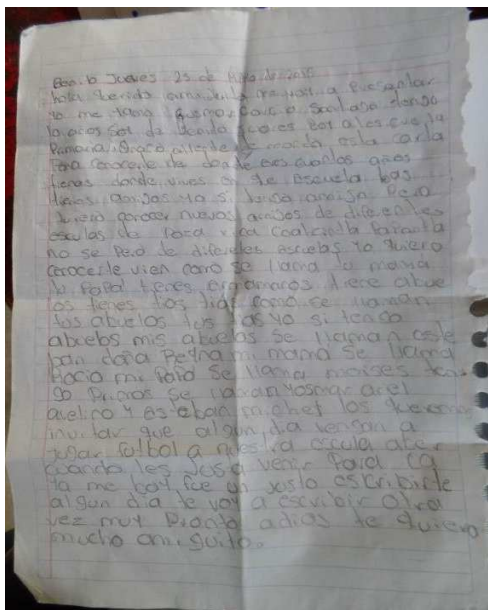 Jueves 25 de de 2015
hola querido amiguito me voy a presentar
yo me llamo Garcia Santiago tengo
años soy de la
Primaria te mando esta carta
Para conocerte de donde eres cuantos años
tienes donde vives en que escuela bas
tienes amigos yo si tengo amigos Pero
quiero conocer nuevos amigos de diferentes
esculas de Poza rica Coatzintla Papantla
no se Pero de diferetes escuelas yo quiero
conocerte vien como se llama tu mama
tu PaPa tienes ermanos tiene abue
los tienes tios tias como se llaman
tus abuelos tus tias yo si tengo
abuelos mis abuelos se llaman este
ban doña Reyna mi mama se llama
Rocio mi PaPa se llama moises ten
go Primos se llaman Yosmar acel
avelino y esteban michel los queremos
invitar que algun dia vengan a
jugar futbol a nuestra escula aber
cuando les gusta venir Para ca
ya me boy fue un justo escribirte
algun dia te voy a escribir otra
vez muy Pronto adios te quiero
mucho amiguito.